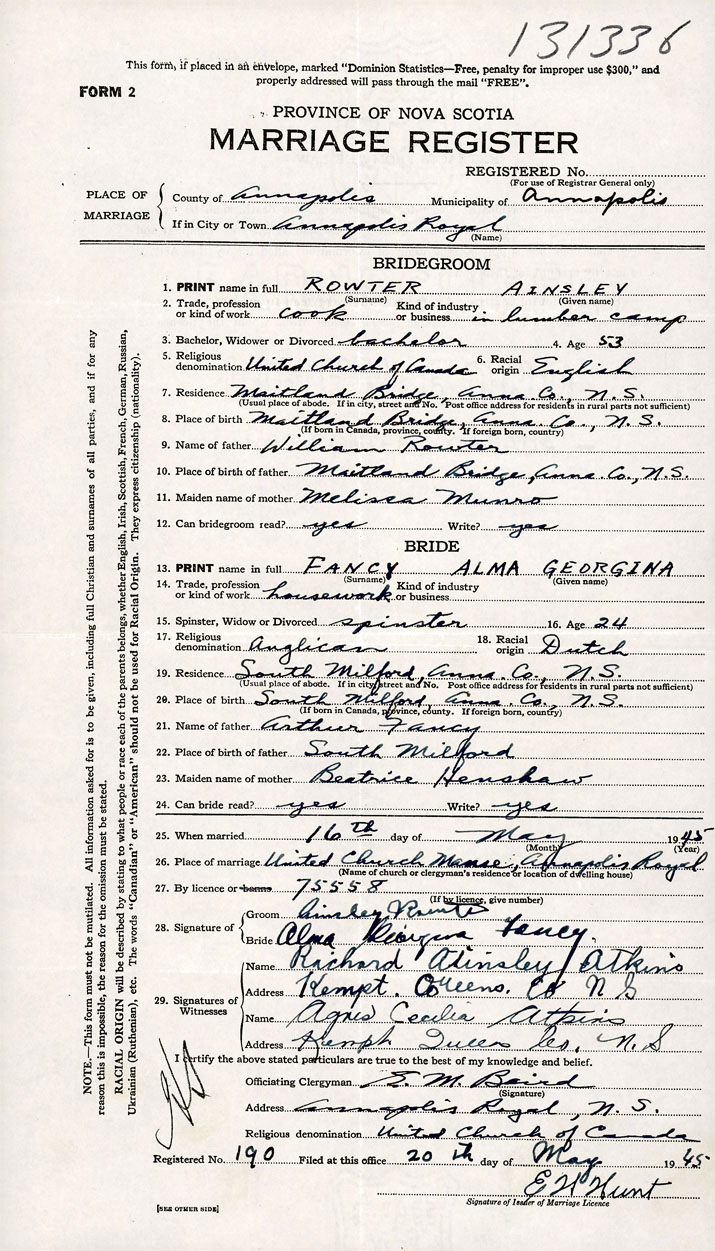 131336
This form, if placed in an envelope, marked "Dominion Statistics—Free, penalty for improper use $300," and
properly addressed will pass through the mail "FREE".
FORM 2
PROVINCE OF NOVA SCOTIA
MARRIAGE REGISTER
REGISTERED No.
(For use of Registrar General only)
PLACE OF MARRIAGE
County of Annapolis Municipality of Annapolis
If in City or Town Annapolis Royal
(Name)
BRIDEGROOM
1. PRINT name in full ROWTER AINSLEY
(Surname) (Given name)
2. Trade, profession or kind of work cook Kind of industry or business in lumber camp
3. Bachelor, Widower or Divorced bachelor 4. Age 53
5. Religious denomination United Church of Canada 6. Racial origin English
7. Residence Maitland Bridge, Anna. Co., N.S.
(Usual place of abode. If in city, street and No. Post office address for residents in rural parts not sufficient)
8. Place of birth Maitland Bridge, Anna. Co., N.S.
(If born in Canada, province, county. If foreign born, country)
9. Name of father William Rowter
10. Place of birth of father Maitland Bridge, Anna. Co., N.S.
11. Maiden name of mother Melissa Munro
12. Can bridegroom read? yes Write? yes
BRIDE
13. PRINT name in full FANCY ALMA GEORGINA
(Surname) (Given name)
14. Trade, profession or kind of work housework Kind of industry or business
15. Spinster, Widow or Divorced spinster 16. Age 24
17. Religious denomination Anglican 18. Racial origin Dutch
19. Residence South Milford, Anna. Co., N.S.
(Usual place of abode. If in city, street and No. Post office address for residents in rural parts not sufficient)
20. Place of birth South Milford, Anna. Co., N.S.
(If born in Canada, province, county. If foreign born, country)
21. Name of father Arthur Fancy
22. Place of birth of father South Milford
23. Maiden name of mother Beatrice Henshaw
24. Can bride read? yes Write? yes
25. When married 16th day of May 1945
(Month) (Year)
26. Place of marriage United Church Manse, Annapolis Royal
(Name of church or clergyman's residence or location of dwelling house)
27. By licence or banns 75558
(If by licence, give number)
28. Signature of
Groom Ainsley
Bride Alma Georgina Fancy.
29. Signatures of Witnesses
Name Richard Atkins
Address Kempt. Queens. Co N S
Name Agnes Cecilia Atkins
Address Kempt Queens Co. N. S
I certify the above stated particulars are true to the best of my knowledge and belief.
Officiating Clergyman E. M. Baird
(Signature)
Address Annapolis Royal, N. S.
Religious denomination United Church of Canada
Registered No. 190 Filed at this office 20th day of May 1945
E H Hunt
Signature of Issuer of Marriage Licence
[SEE OTHER SIDE]
NOTE.—This form must not be mutilated. All information asked for is to be given, including full Christian and surnames of all parties, and if for any
reason this is impossible, the reason for the omission must be stated.
RACIAL ORIGIN will be described by stating to what people or race each of the parents belongs, whether English, Irish, Scottish, French, German, Russian,
Ukrainian (Ruthenian), etc. The words "Canadian" or "American" should not be used for Racial Origin. They express citizenship (nationality).